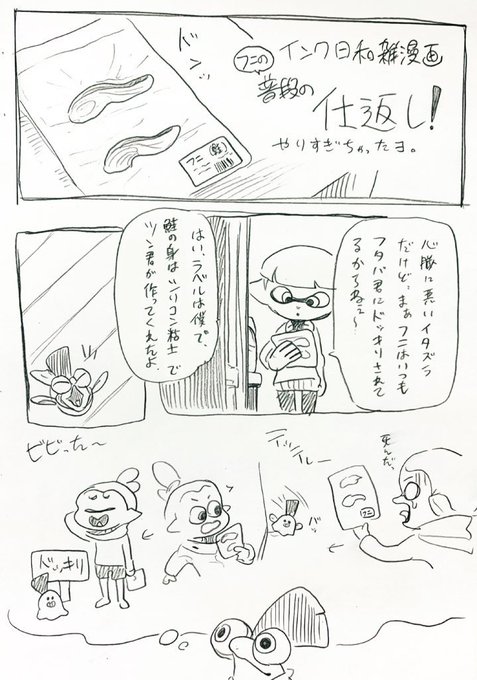 ドンッ
フニの
インク日和雑漫画
普段の
仕返し!
やりすぎちゃったヨ。
フニ
鮭
心臓に悪いイタズラ
だけど…まぁフニはいつも
フタバ君にドッキリされて
るからねぇ〜
はい、ラベルは僕で、
鮭の身はシリコン粘土で
ツン君が作ってくれたよ。
死んだ。
フニ
テッテレー
バッ
ビビった〜
ドッキリ